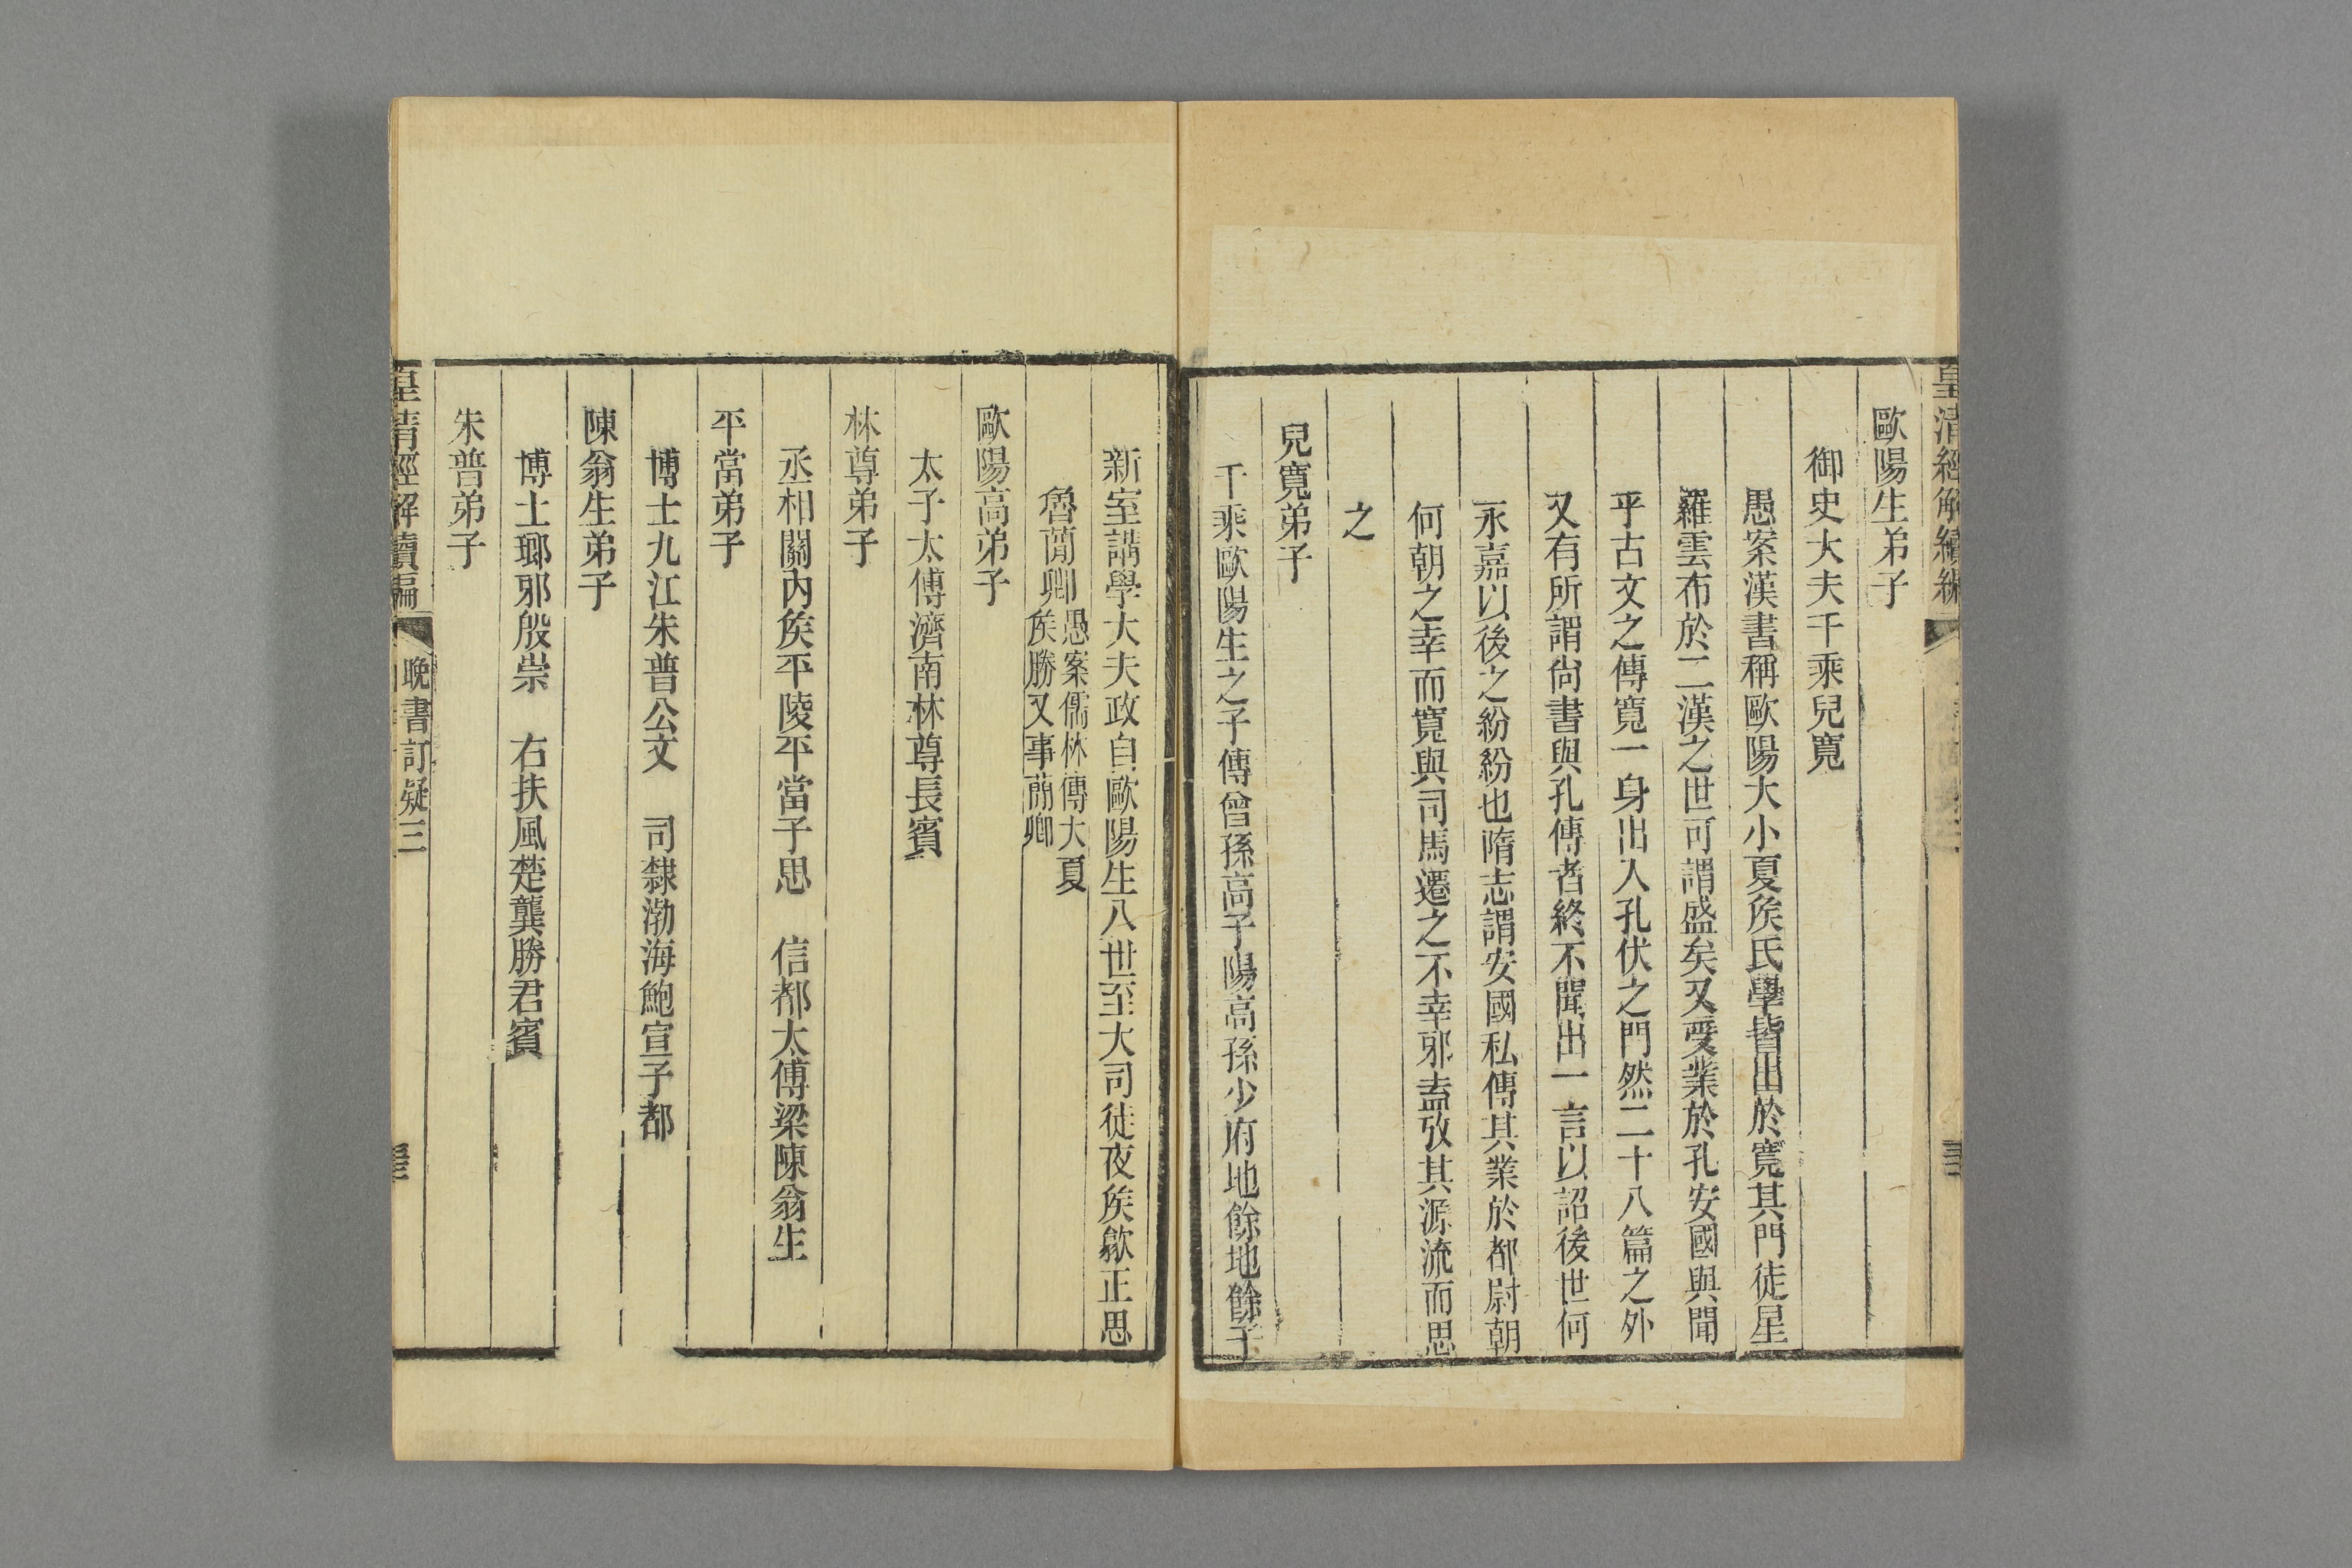 皇清經解續編
歐陽生弟子
御史大夫千乘兒寬
愚案漢書稱歐陽大小夏矦氏學皆出於寬其門徒星
羅雲布於二漢之世可謂盛矣又受業於孔安國與聞
乎古文之傳寬一身出入孔伏之門然二十八篇之外
又有所謂尙書與孔傳者終不聞出一言以詔後世何
永嘉以後之紛紛也隋志謂安國私傳其業於都尉朝
何朝之幸而寬與司馬遷之不幸邪盍攷其源流而思
之
兒寬弟子
千乘歐陽生之子傳曾孫高子陽高孫少府地餘地餘子
新室講學大夫政自歐陽生八世至大司徒夜矦歙正思
魯蕑卿愚案儒林傳大夏
矦勝又事蕑卿
歐陽高弟子
太子太傅濟南林尊長賓
林尊弟子
丞相關內矦平陵平當子思　信都太傅梁陳翁生
平當弟子
博士九江朱普公文　司隸渤海鮑宣子都
陳翁生弟子
博士瑯邪殷崇　右扶風楚龔勝君賓
朱普弟子
皇清經解續編
晚書訂疑三